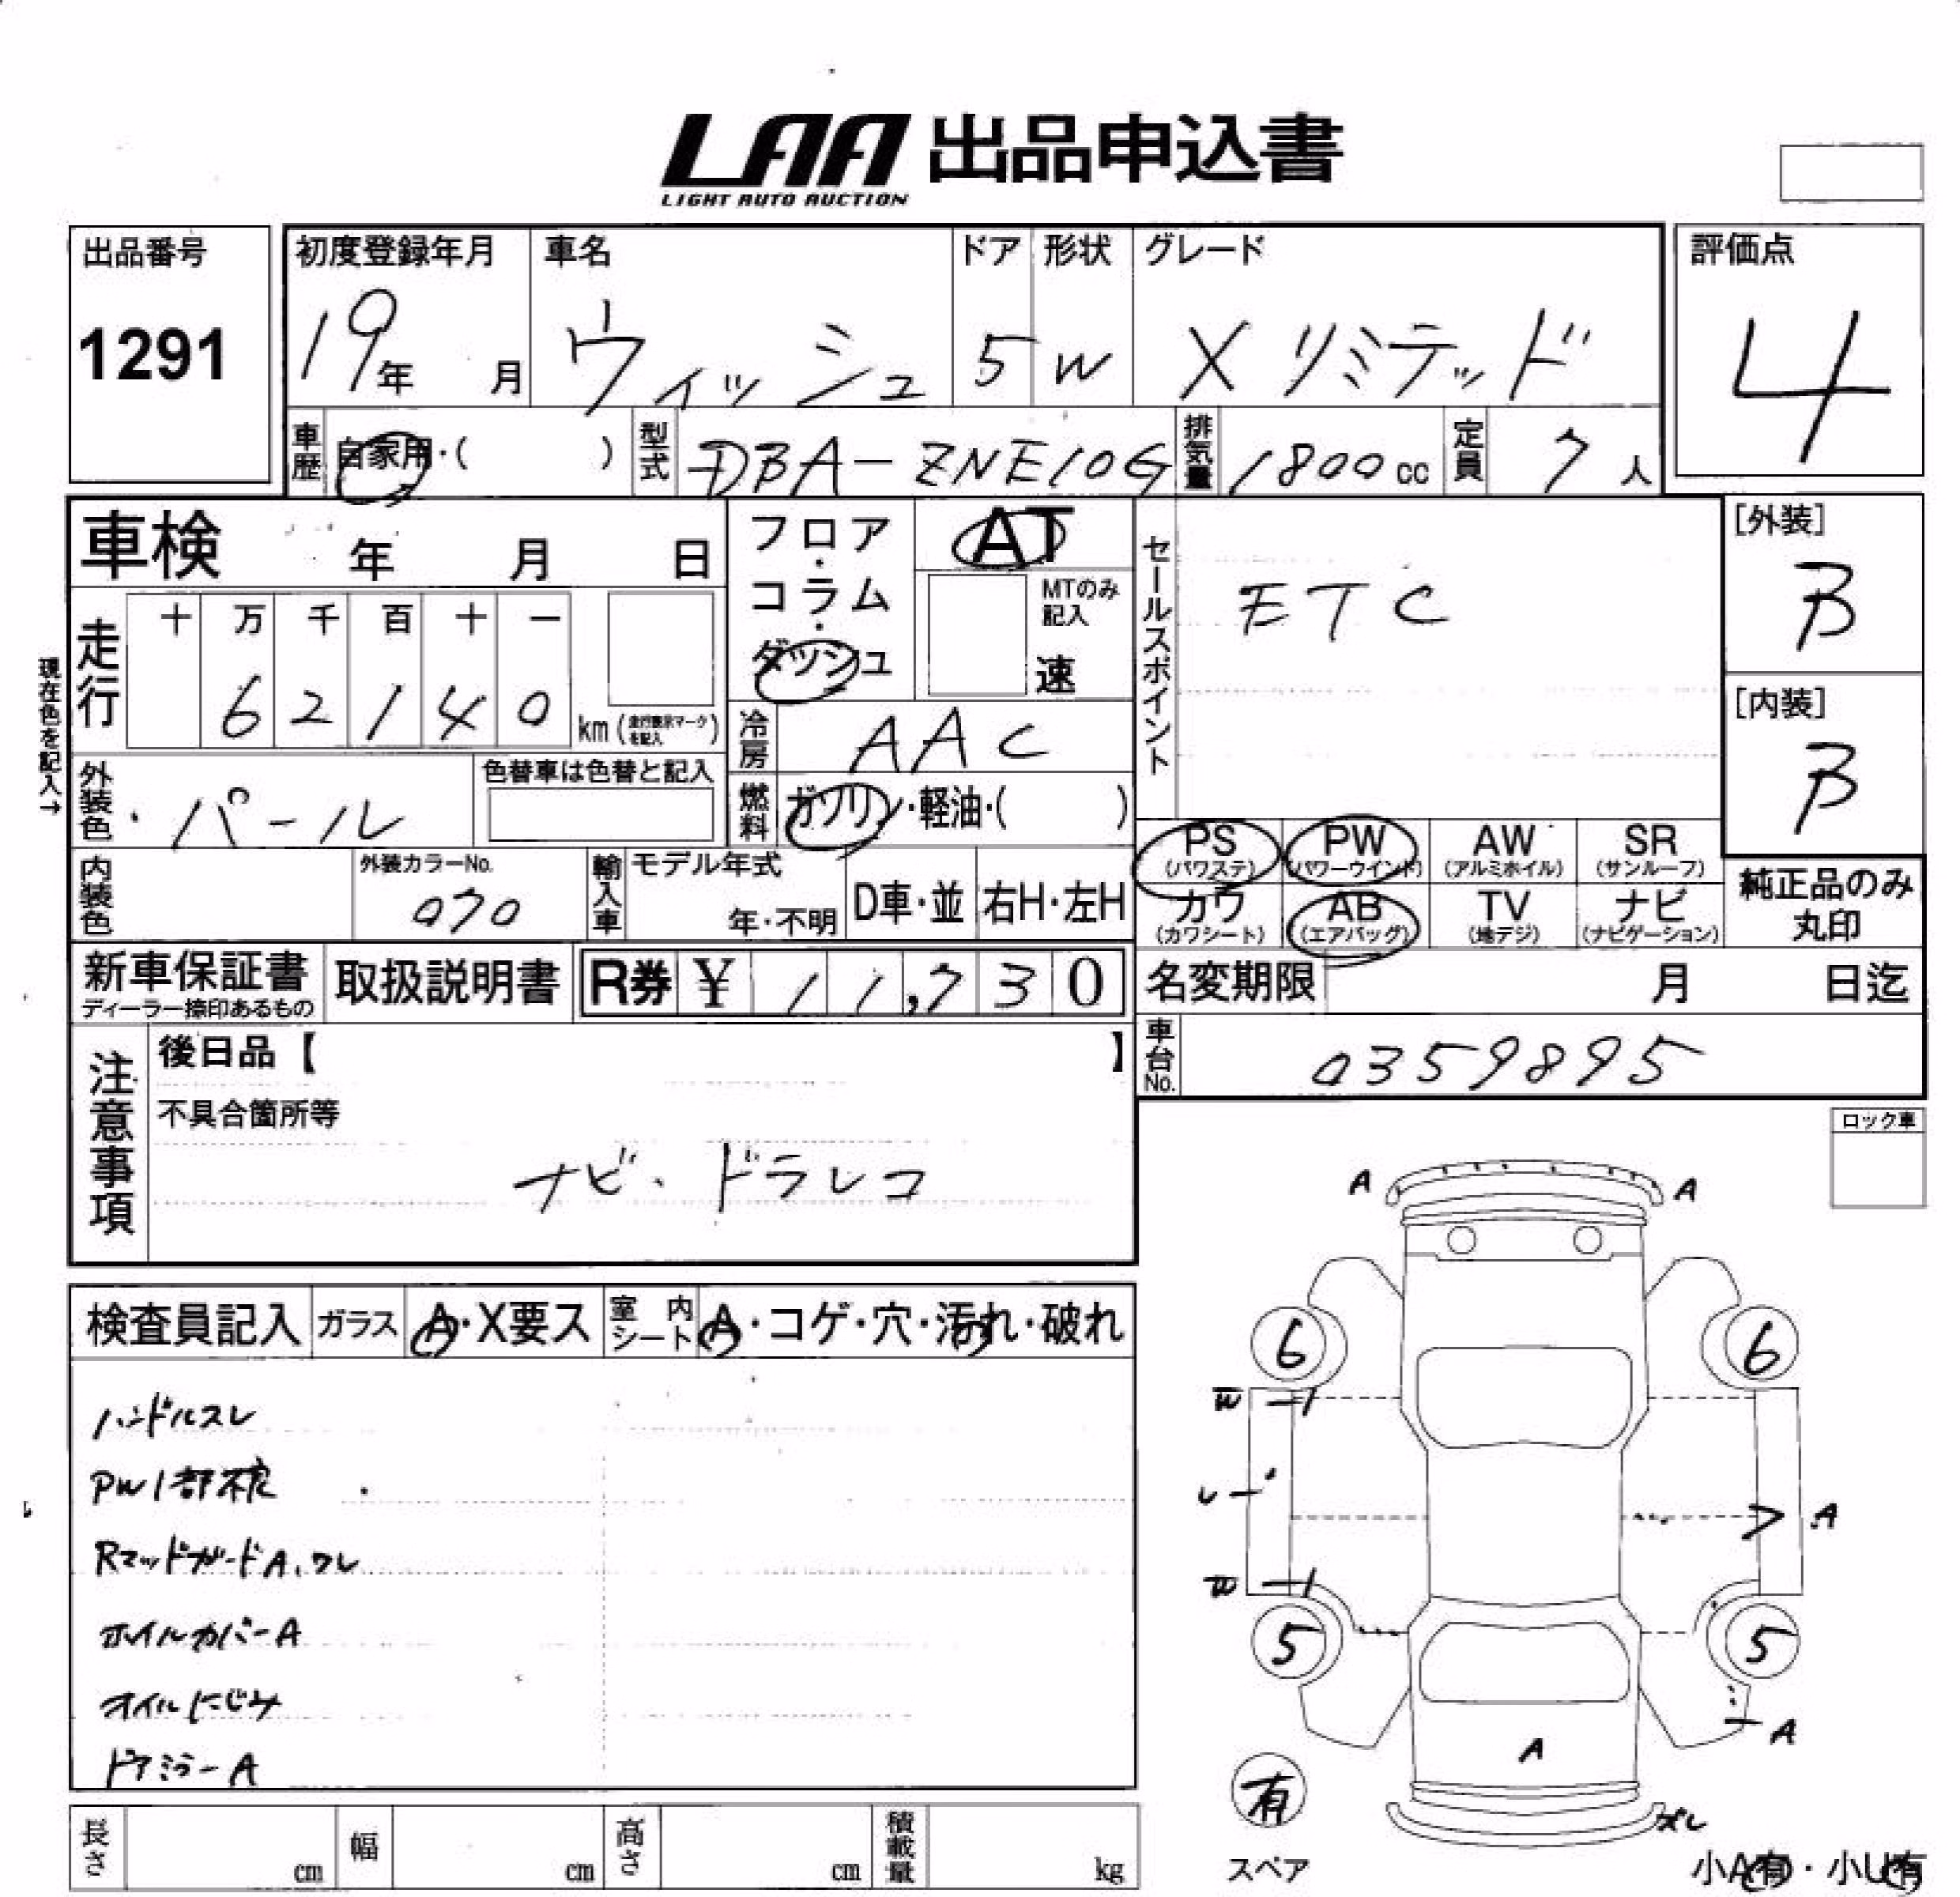 LAA 出品申込書
LIGHT AUTO AUCTION
出品番号
1291
初度登録年月
19年 月
車名
ウィッシュ
ドア
5
形状
W
グレード
X リミテッド
評価点
4
車歴 自家用・( )
型式 DBA-ZNE10G
排気量 1800cc
定員 7人
車検 年 月 日
フロア・コラム・ダッシュ
AT
MTのみ記入
速
セールスポイント
ETC
[外装]
B
[内装]
B
現在色を記入→
走行
十 万 千 百 十 一
6 2 1 4 0
km(走行表示マークを記入)
冷房 AAC
外装色・パール
色替車は色替と記入
燃料 ガソリン・軽油・( )
PS (パワステ)
PW (パワーウインド)
AW (アルミホイル)
SR (サンルーフ)
カワ (カワシート)
AB (エアバッグ)
TV (地デジ)
ナビ (ナビゲーション)
純正品のみ丸印
内装色
外装カラーNo.
070
輸入車
モデル年式
年・不明
D車・並
右H・左H
新車保証書
ディーラー捺印あるもの
取扱説明書
R券 ¥ 11,730
名変期限 月 日迄
車台No. 0359895
注意事項
後日品【 】
不具合箇所等
ナビ・ドラレコ
ロック車
検査員記入
ガラス A・X要ス
室内シート A・コゲ・穴・汚れ・破れ
ハンドルスレ
PW1部不良
RマッドガードA、ワレ
ホイルカバーA
オイルにじみ
ドアミラーA
A
A
6
6
A
5
5
A
A
ズレ
有
スペア
小A有・小U有
長さ cm
幅 cm
高さ cm
積載量 kg